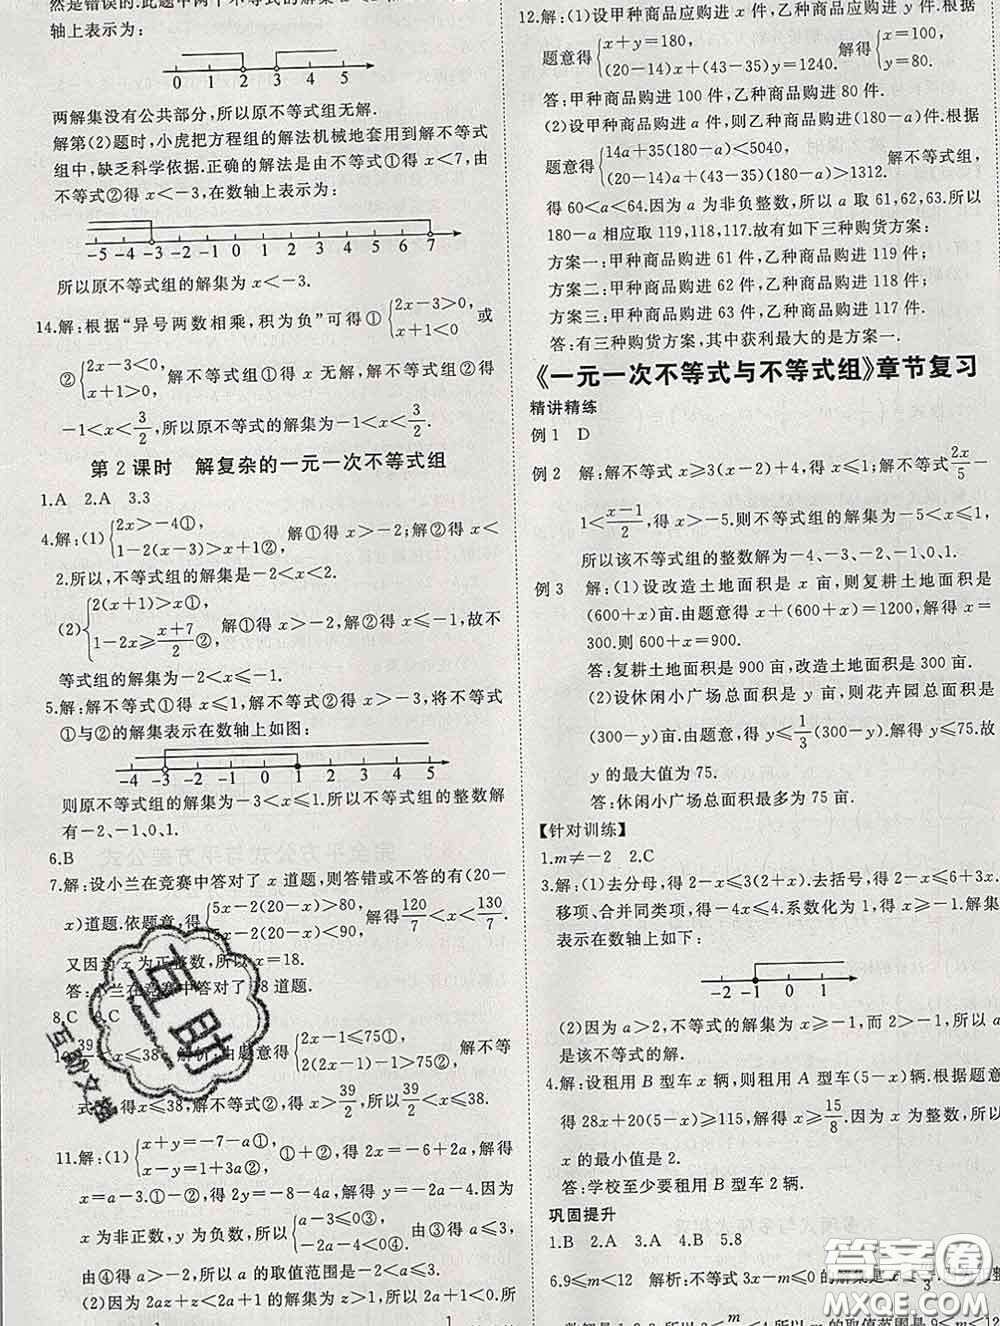 然是错误的.此题中两个不等式的解集在数
轴上表示为:
0 1 2 3 4 5
两解集没有公共部分,所以原不等式组无解.
解第(2)题时,小虎把方程组的解法机械地套用到解不等式
组中,缺乏科学依据.正确的解法是由不等式①得 x<7,由
不等式②得 x<-3,在数轴上表示为:
-5 -4 -3 -2 -1 0 1 2 3 4 5 6 7
所以原不等式组的解集为 x<-3.
14.解:根据“异号两数相乘,积为负”可得①{2x-3>0, x+1<0 或
②{2x-3<0, x+1>0. 解不等式组①得 x 无解,解不等式组②得
-1<x<3/2,所以原不等式的解集为-1<x<3/2.
第2课时 解复杂的一元一次不等式组
1.A 2.A 3.3
4.解:(1){2x>-4①, 1-2(x-3)>x+1②, 解①得 x>-2;解②得 x<
2.所以,不等式组的解集是-2<x<2.
(2){2(x+1)>x①, 1-2x≥(x+7)/2②, 解①得 x>-2,解②得 x≤-1,故不
等式组的解集为-2<x≤-1.
5.解:解不等式①得 x≤1,解不等式②得 x>-3,将不等式
①与②的解集表示在数轴上如图:
-4 -3 -2 -1 0 1 2 3 4 5
则原不等式组的解集为-3<x≤1.所以不等式组的整数解
有-2、-1、0、1.
6.B
7.解:设小兰在竞赛中答对了 x 道题,则答错或不答的有(20-
x)道题.依题意,得{5x-2(20-x)>80, 5x-2(20-x)<90, 解得120/7<x<130/7.
又因为 x 为正整数,所以 x=18.
答:小兰在竞赛中答对了18道题.
8.C 9.C
10.39/2<x≤38 解析:由题意得{2x-1≤75①, 2(2x-1)-1>75②, 解不等
式①得 x≤38,解不等式②,得 x>39/2,所以39/2<x≤38.
11.解:(1){x+y=-7-a①, x-y=1+3a②, ①+②,得 2x=-6+2a,得
x=a-3.①-②,得 2y=-8-4a,得 y=-2a-4.因为
x 为非正数,y 为负数,所以{a-3≤0③, -2a-4<0④,
由③④得,所以 a 的取值范围是-2<a≤3.
(2)因为 2az+z<2a+1 的解集为 z>1,所以 2a+1<0.所
12.解:(1)设甲种商品应购进 x 件,乙种商品应购进 y 件.根据
题意得{x+y=180, (20-14)x+(43-35)y=1240. 解得{x=100, y=80.
答:甲种商品购进 100 件,乙种商品购进 80 件.
(2)设甲种商品购进 a 件,则乙种商品购进(180-a)件.根据
题意得{14a+35(180-a)<5040, (20-14)a+(43-35)(180-a)>1312. 解不等式组,
得 60<a<64.因为 a 为非负整数,所以 a 取 61,62,63.所以
180-a 相应取 119,118,117.故有如下三种购货方案:
方案一:甲种商品购进 61 件,乙种商品购进 119 件;
方案二:甲种商品购进 62 件,乙种商品购进 118 件;
方案三:甲种商品购进 63 件,乙种商品购进 117 件.
答:有三种购货方案,其中获利最大的是方案一.
《一元一次不等式与不等式组》章节复习
精讲精练
例1 D
例2 解:解不等式 x≥3(x-2)+4,得 x≤1;解不等式2x/5-
1<(x-1)/2,得 x>-5.则不等式组的解集为-5<x≤1,
所以该不等式组的整数解为-4、-3、-2、-1、0、1.
例3 解:(1)设改造土地面积是 x 亩,则复耕土地面积是
(600+x)亩.由题意得 x+(600+x)=1200,解得 x=
300.则 600+x=900.
答:复耕土地面积是 900 亩,改造土地面积是 300 亩.
(2)设休闲小广场总面积是 y 亩,则花卉园总面积是
(300-y)亩.由题意,得 y≤1/3(300-y).解得 y≤75.故
y 的最大值为 75.
答:休闲小广场总面积最多为 75 亩.
【针对训练】
1.m≠-2 2.C
3.解:(1)去分母,得 2-x≤3(2+x).去括号,得 2-x≤6+3x.
移项、合并同类项,得-4x≤4.系数化为 1,得 x≥-1.解集
表示在数轴上如下:
-2 -1 0 1
(2)因为 a>2,不等式的解集为 x≥-1,而 2>-1,所以 a
是该不等式的解.
4.解:设租用 B 型车 x 辆,则租用 A 型车(5-x)辆.根据题意
得 28x+20(5-x)≥115,解得 x≥15/8.因为 x 为整数,所以
x 的最小值是 2.
答:学校至少要租用 B 型车 2 辆.
巩固提升
1.B 2.A 3.A 4.B 5.8
6.9≤m<12 解析:不等式 3x-m≤0 的解集是 x≤m/3
互助
互助文档
答案圈
MXQE.COM